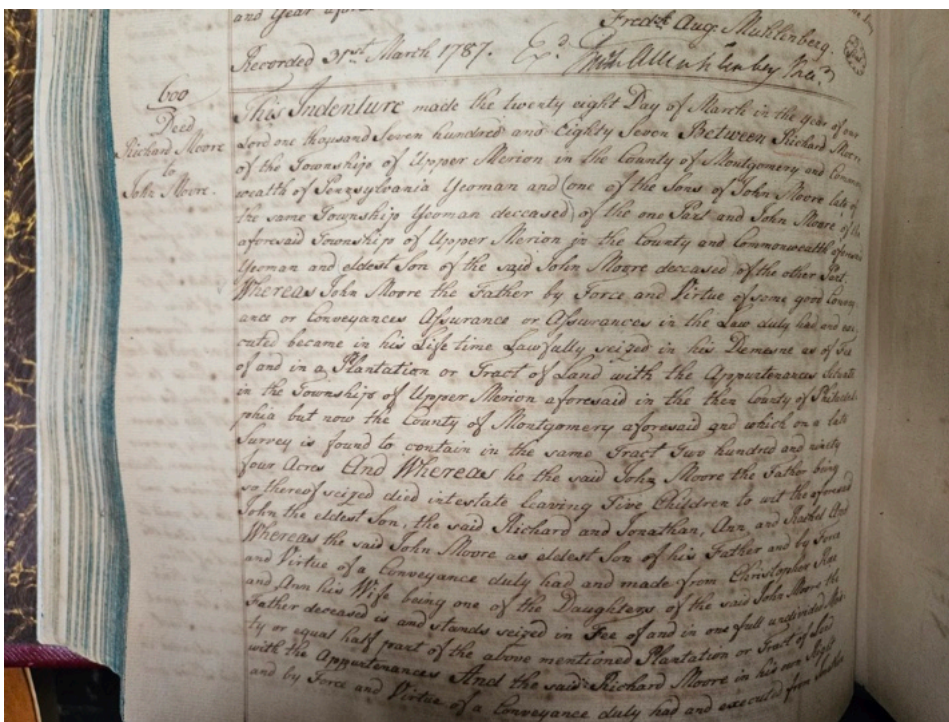 and Year afore
Fredk. Aug. Muhlenberg.
Recorded 31st. March 1787. Exd.
600
Deed
Richard Moore
to
John Moore.
This Indenture made the twenty eight Day of March in the Year of our
Lord one thousand Seven hundred and Eighty Seven Between Richard Moore
of the Township of Upper Merion in the County of Montgomery and Common
wealth of Pennsylvania Yeoman and (one of the Sons of John Moore late of
the same Township Yeoman deceased) of the one Part and John Moore of the
aforesaid Township of Upper Merion in the County and Commonwealth aforesaid
Yeoman and eldest Son of the said John Moore deceased of the other Part
Whereas John Moore the Father by Force and Virtue of some good Convey
ance or Conveyances Assurance or Assurances in the Law duly had and exe
cuted became in his Life time Lawfully seized in his Demesne as of Fee
of and in a Plantation or Tract of Land with the Appurtenances Situate
in the Township of Upper Merion aforesaid in the then County of Philadel
phia but now the County of Montgomery aforesaid and which on a late
Survey is found to contain in the same Tract Two hundred and ninety
four Acres And Whereas he the said John Moore the Father being
so thereof seized died intestate leaving Five Children to wit the aforesaid
John the eldest Son, the said Richard and Jonathan, Ann, and Rachel And
Whereas the said John Moore as eldest Son of his Father and by Force
and Virtue of a Conveyance duly had and made from Christopher
and Ann his Wife being one of the Daughters of the said John Moore the
Father deceased is and stands seized in Fee of and in one full undivided Moi
ty or equal half part of the above mentioned Plantation or Tract of Land
with the Appurtenances And the said Richard Moore in his own Right
and by Force and Virtue of a Conveyance duly had and executed from